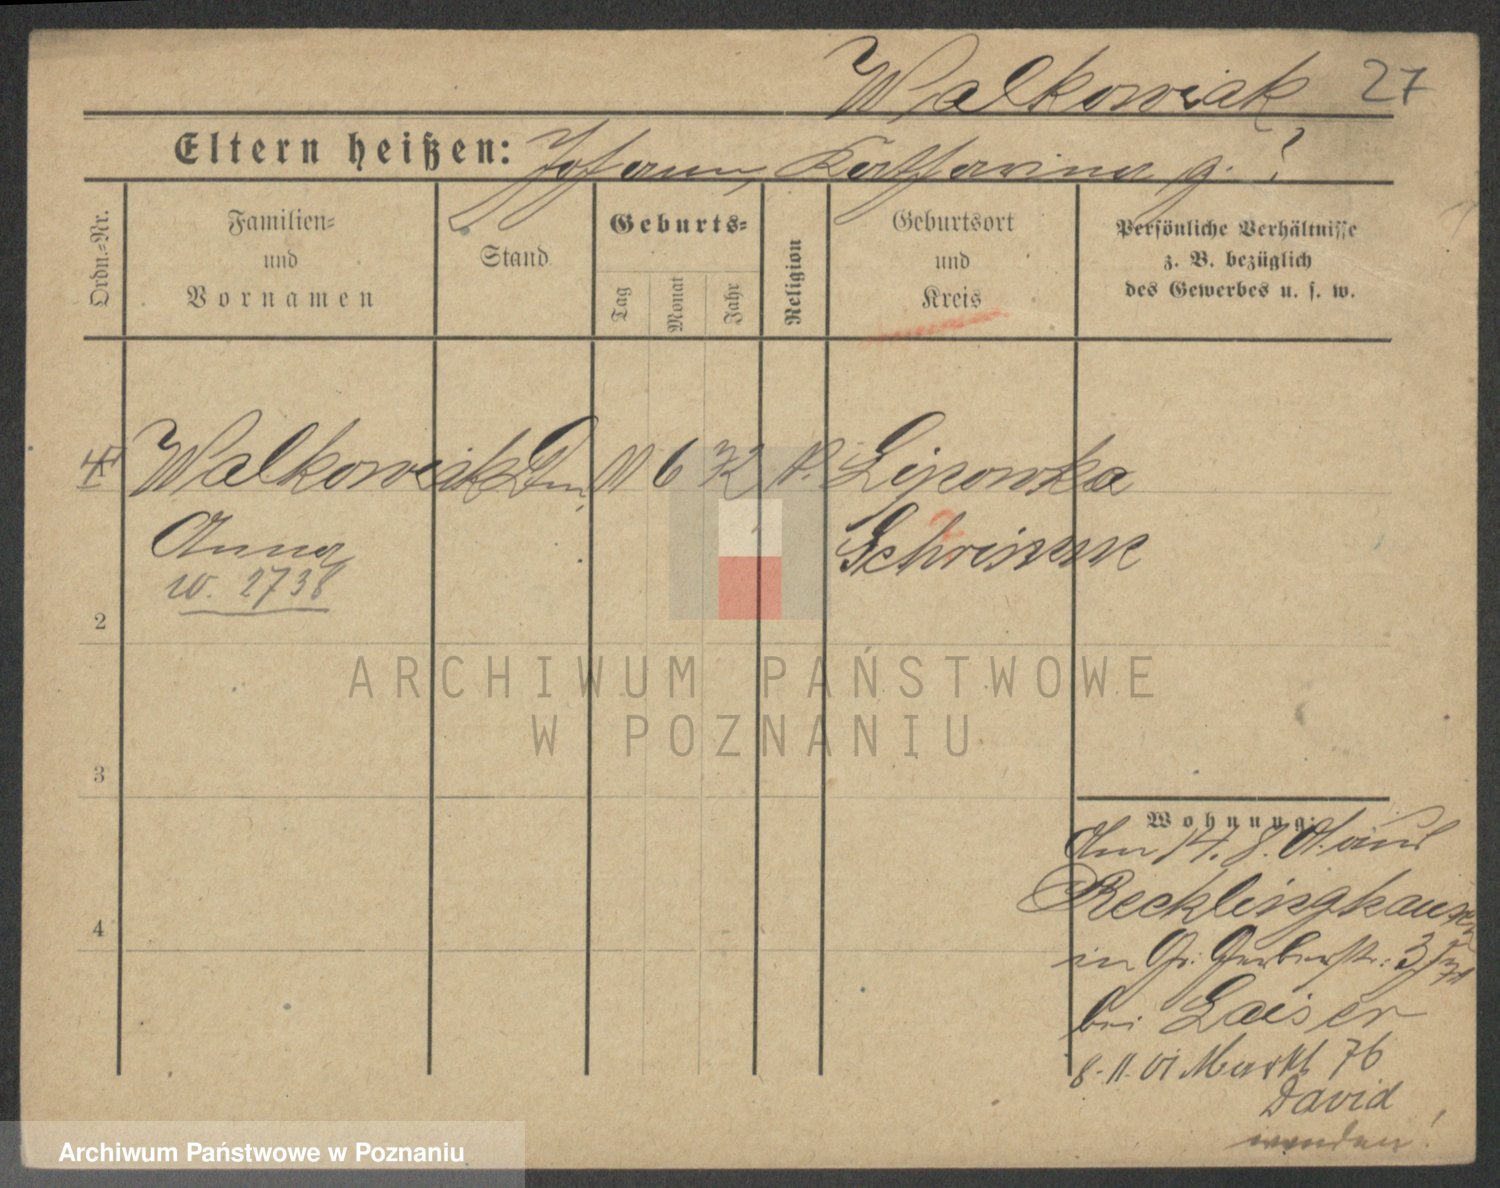 Walkowiak 27
Eltern heißen: Johann, Katharina g. ?
Ordn.=Nr.
Familien=
und
Vornamen
Stand
Geburts=
Tag
Monat
Jahr
Religion
Geburtsort
und
Kreis
Persönliche Verhältnisse
z. B. bezüglich
des Gewerbes u. s. w.
Walkowiak 6 Lipowka
Anna Schrimm
w. 2738
2
3
4
Wohnung:
Am 14. 8. 01. aus
Recklinghausen
in Gr. Gerberstr.
bei Laiser
8. 11. 01 Markt 76
David
wenden!
ARCHIWUM PAŃSTWOWE
W POZNANIU
Archiwum Państwowe w Poznaniu